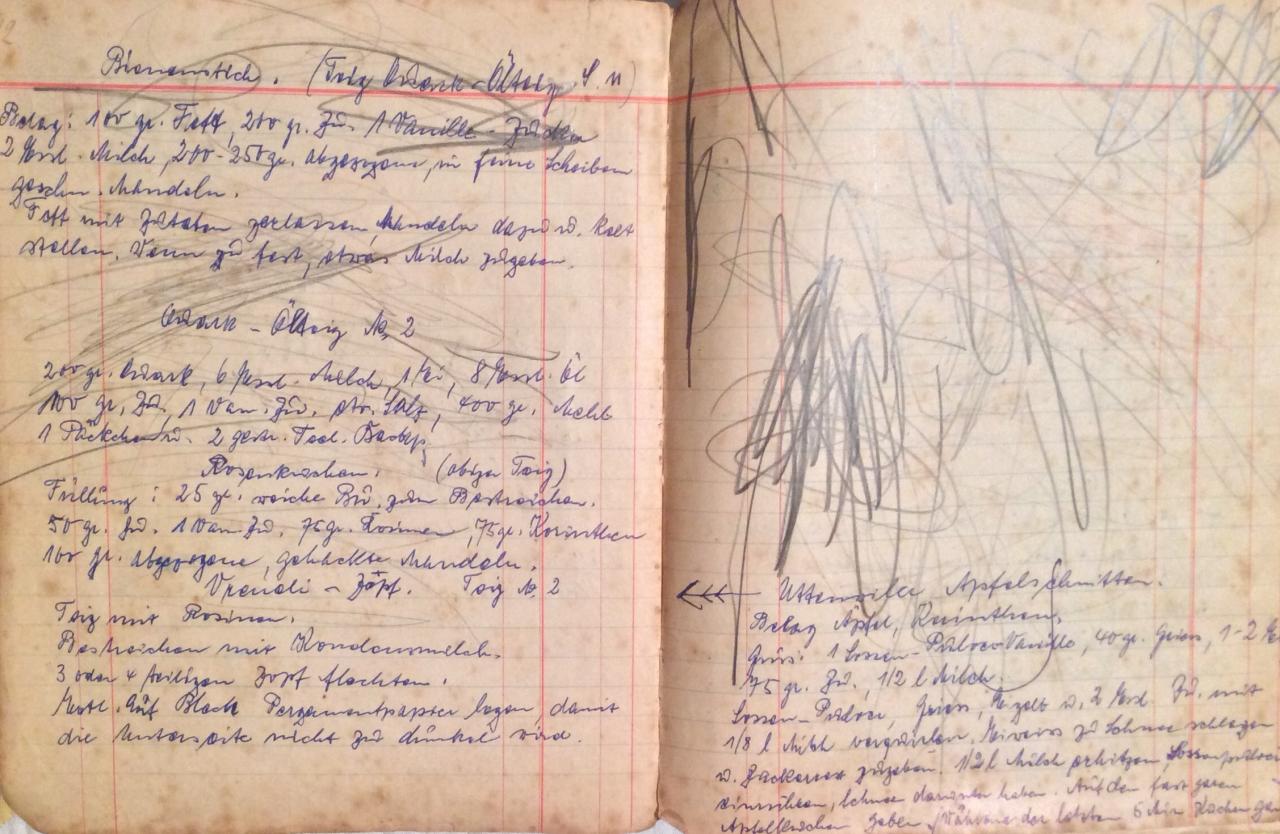 Bienenstich. (Teig Quark-Ölteig S. 11)
Belag: 100 gr. Fett, 200 gr. Zu. 1 Vanille-Zucker
2 Essl. Milch, 200-250 gr. abgezogene, in feine Scheiben
geschn. Mandeln.
Fett mit Zutaten zerlassen, Mandeln dazu u. kalt
stellen. Wenn zu fest, etwas Milch zugeben.
Quark-Ölteig No 2
200 gr. Quark, 6 Essl. Milch, 1 Ei, 8 Essl. Öl
100 gr. Zu., 1 Van. Zu., Salz, 400 gr. Mehl
1 Päckchen u. 2 gestr. Teel. Backp.
Rosenkuchen. (obiger Teig)
Füllung: 25 gr. weiche Bu. zum Bestreichen.
50 gr. Zu. 1 Van. Zu. 75 gr. Rosinen, 75 gr. Korinthen
100 gr. abgezogene, gehackte Mandeln.
Vreneli-Zopf. Teig No 2
Teig mit Rosinen.
Bestreichen mit Kondensmilch.
3 oder 4 teiligen Zopf flechten.
Evtl. Auf Blech Pergamentpapier legen, damit
die Unterseite nicht zu dunkel wird.
Apfelschnitten.
Belag Äpfel, Korinthen,
Guss: 1 Vanille, 40 gr. Griess, 1-2
75 gr. Zu., 1/2 l Milch.
Griess, u. 2 Essl. Zu. mit
1/8 l Milch verquirlen, Eiweiss zu Schnee schlagen
u. zugeben. 1/2 l Milch erhitzen,
einrühren, Schnee darunter heben. Auf den fast garen
Apfelkuchen geben, Während der letzten 5 Min